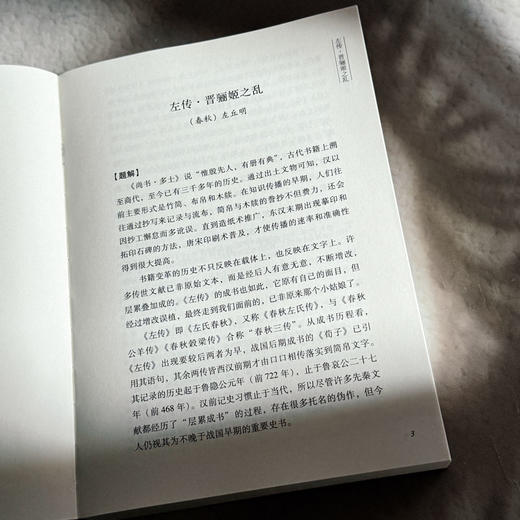 左传·晋骊姬之乱
左传·晋骊姬之乱
（春秋）左丘明
【题解】
《尚书·多士》说“惟殷先人，有册有典”，古代书籍上溯
至商代，至今已有三千多年的历史。通过出土文物可知，汉以
前主要形式是竹简、布帛和木牍。在知识传播的早期，人们往
往通过抄写来记录与流布，简帛与木牍的誊抄不但费力，还会
因抄工懈怠而多讹误。直到造纸术推广，东汉末期出现摹印和
拓印石碑的方法，唐宋印刷术普及，才使传播的速率和准确性
得到很大提高。
书籍变革的历史不只反映在载体上，也反映在文字上。许
多传世文献已非原始文本，而是经后人有意无意，不断增改，
层累叠加成的。《左传》的成书也如此，它原有自己的面目，但
经过增改误植，最终走到我们面前的，已非原来那个小姑娘了。
《左传》即《左氏春秋》，又称《春秋左氏传》，与《春秋
公羊传》《春秋穀梁传》合称“春秋三传”。从成书历程看，
《左传》出现要较后两者为早，战国后期成书的《荀子》已引
用其语句，其余两传皆西汉前期才由口口相传落实到简帛文字。
其记录的历史起于鲁隐公元年（前722年），止于鲁哀公二十七
年（前468年）。汉前记史习惯止于当代，所以尽管许多先秦文
献都经历了“层累成书”的过程，存在很多托名的伪作，但今
人仍视其为不晚于战国早期的重要史书。
3